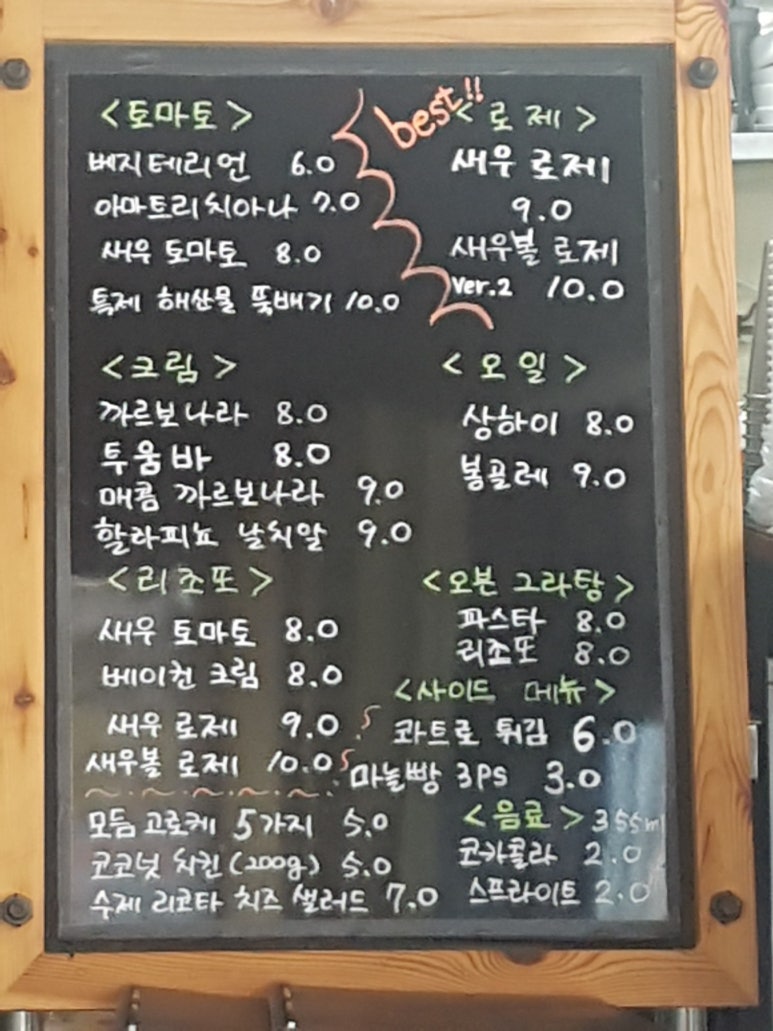 <토마토>
베지테리언 6.0
아마트리치아나 7.0
새우 토마토 8.0
특제 해산물 뚝배기 10.0
best!!
<로제>
새우 로제
9.0
새우볼 로제
ver.2 10.0
<크림>
까르보나라 8.0
투움바 8.0
매콤 까르보나라 9.0
할라피뇨 날치알 9.0
<오일>
상하이 8.0
봉골레 9.0
<리조또>
새우 토마토 8.0
베이컨 크림 8.0
새우 로제 9.0
새우볼 로제 10.0
<오븐 그라탕>
파스타 8.0
리조또 8.0
<사이드 메뉴>
콰트로 튀김 6.0
마늘빵 3PS 3.0
모듬 고로케 5가지 5.0
코코넛 치킨(200g) 5.0
수제 리코타 치즈 샐러드 7.0
<음료> 355ml
코카콜라 2.0
스프라이트 2.0